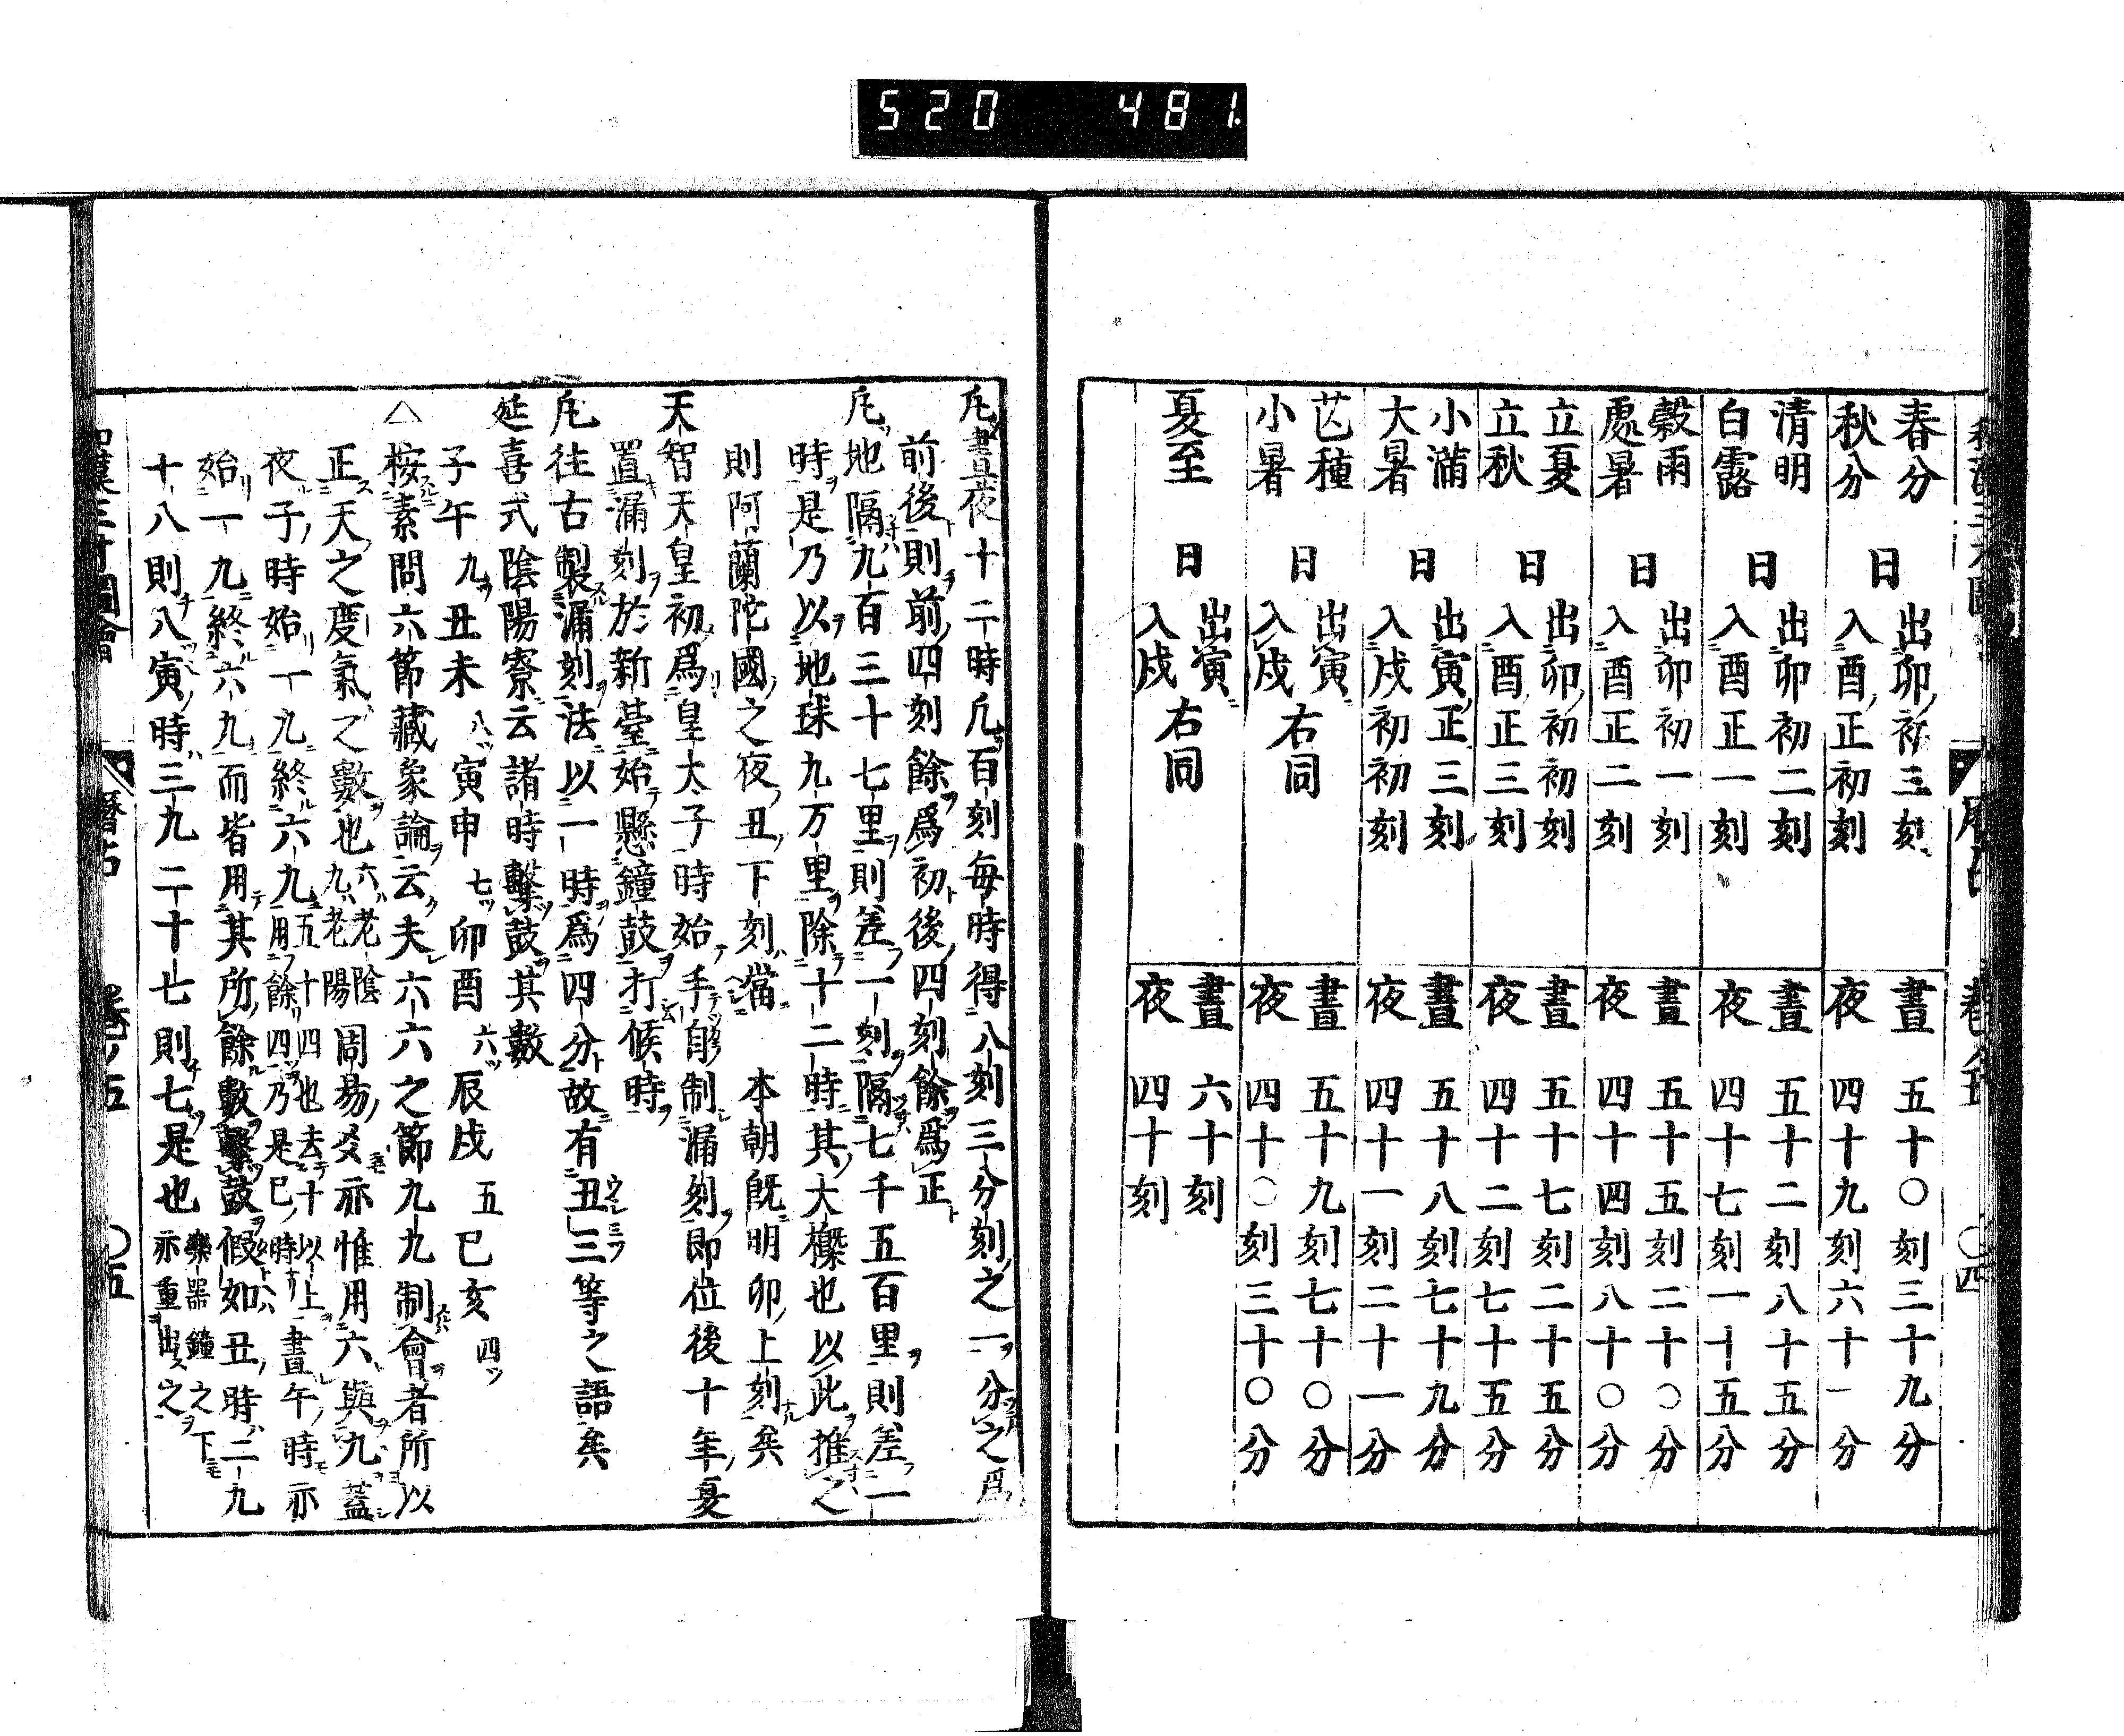 520 481
春分
秋分
日
出卯初三刻
入酉正初刻
晝 五十〇刻三十九分
夜 四十九刻六十一分
清明
白露
日
出卯初二刻
入酉正一刻
晝 五十二刻八十五分
夜 四十七刻一十五分
穀雨
處暑
日
出卯初一刻
入酉正二刻
晝 五十五刻二十〇分
夜 四十四刻八十〇分
立夏
立秋
日
出卯初初刻
入酉正三刻
晝 五十七刻二十五分
夜 四十二刻七十五分
小滿
大暑
日
出寅正三刻
入戌初初刻
晝 五十八刻七十九分
夜 四十一刻二十一分
芒種
小暑
日
出寅
入戌
右同
晝 五十九刻七十〇分
夜 四十〇刻三十〇分
夏至
日
出寅
入戌
右同
晝 六十刻
夜 四十刻
凡晝夜十二時凡百刻毎時得八刻三分刻之一分之爲
前後則前四刻餘爲初後四刻餘爲正
凡地隔九百三十七里則差一刻隔七千五百里則差一
時是乃以地球九万里除十二時其大槩也以此推之
則阿蘭陀國之夜丑下刻當 本朝既明卯上刻矣
天智天皇初爲皇太子時始手自制漏刻即位後十年夏
置漏刻於新臺始懸鐘鼓打候時
凡往古製漏刻法以一時爲四分故有丑三等之語矣
延喜式陰陽寮云諸時擊鼓其數
子午九丑未八ツ寅申七ツ卯酉六ツ辰戌五巳亥四ツ
△按素問六節藏象論云夫六六之節九九制會者所以
正天之度氣之數也六老陰九老陽周易爻亦惟用六與九蓋
夜子時始一九終六九五十四也去十以上用餘四乃是巳時晝午時亦
始一九終六九而皆用其所餘數擊鼓假如丑時二九
十八則八寅時三九二十七則七是也樂器鐘之下亦重出之
和漢三才圖會 暦占 卷ノ五 〇五